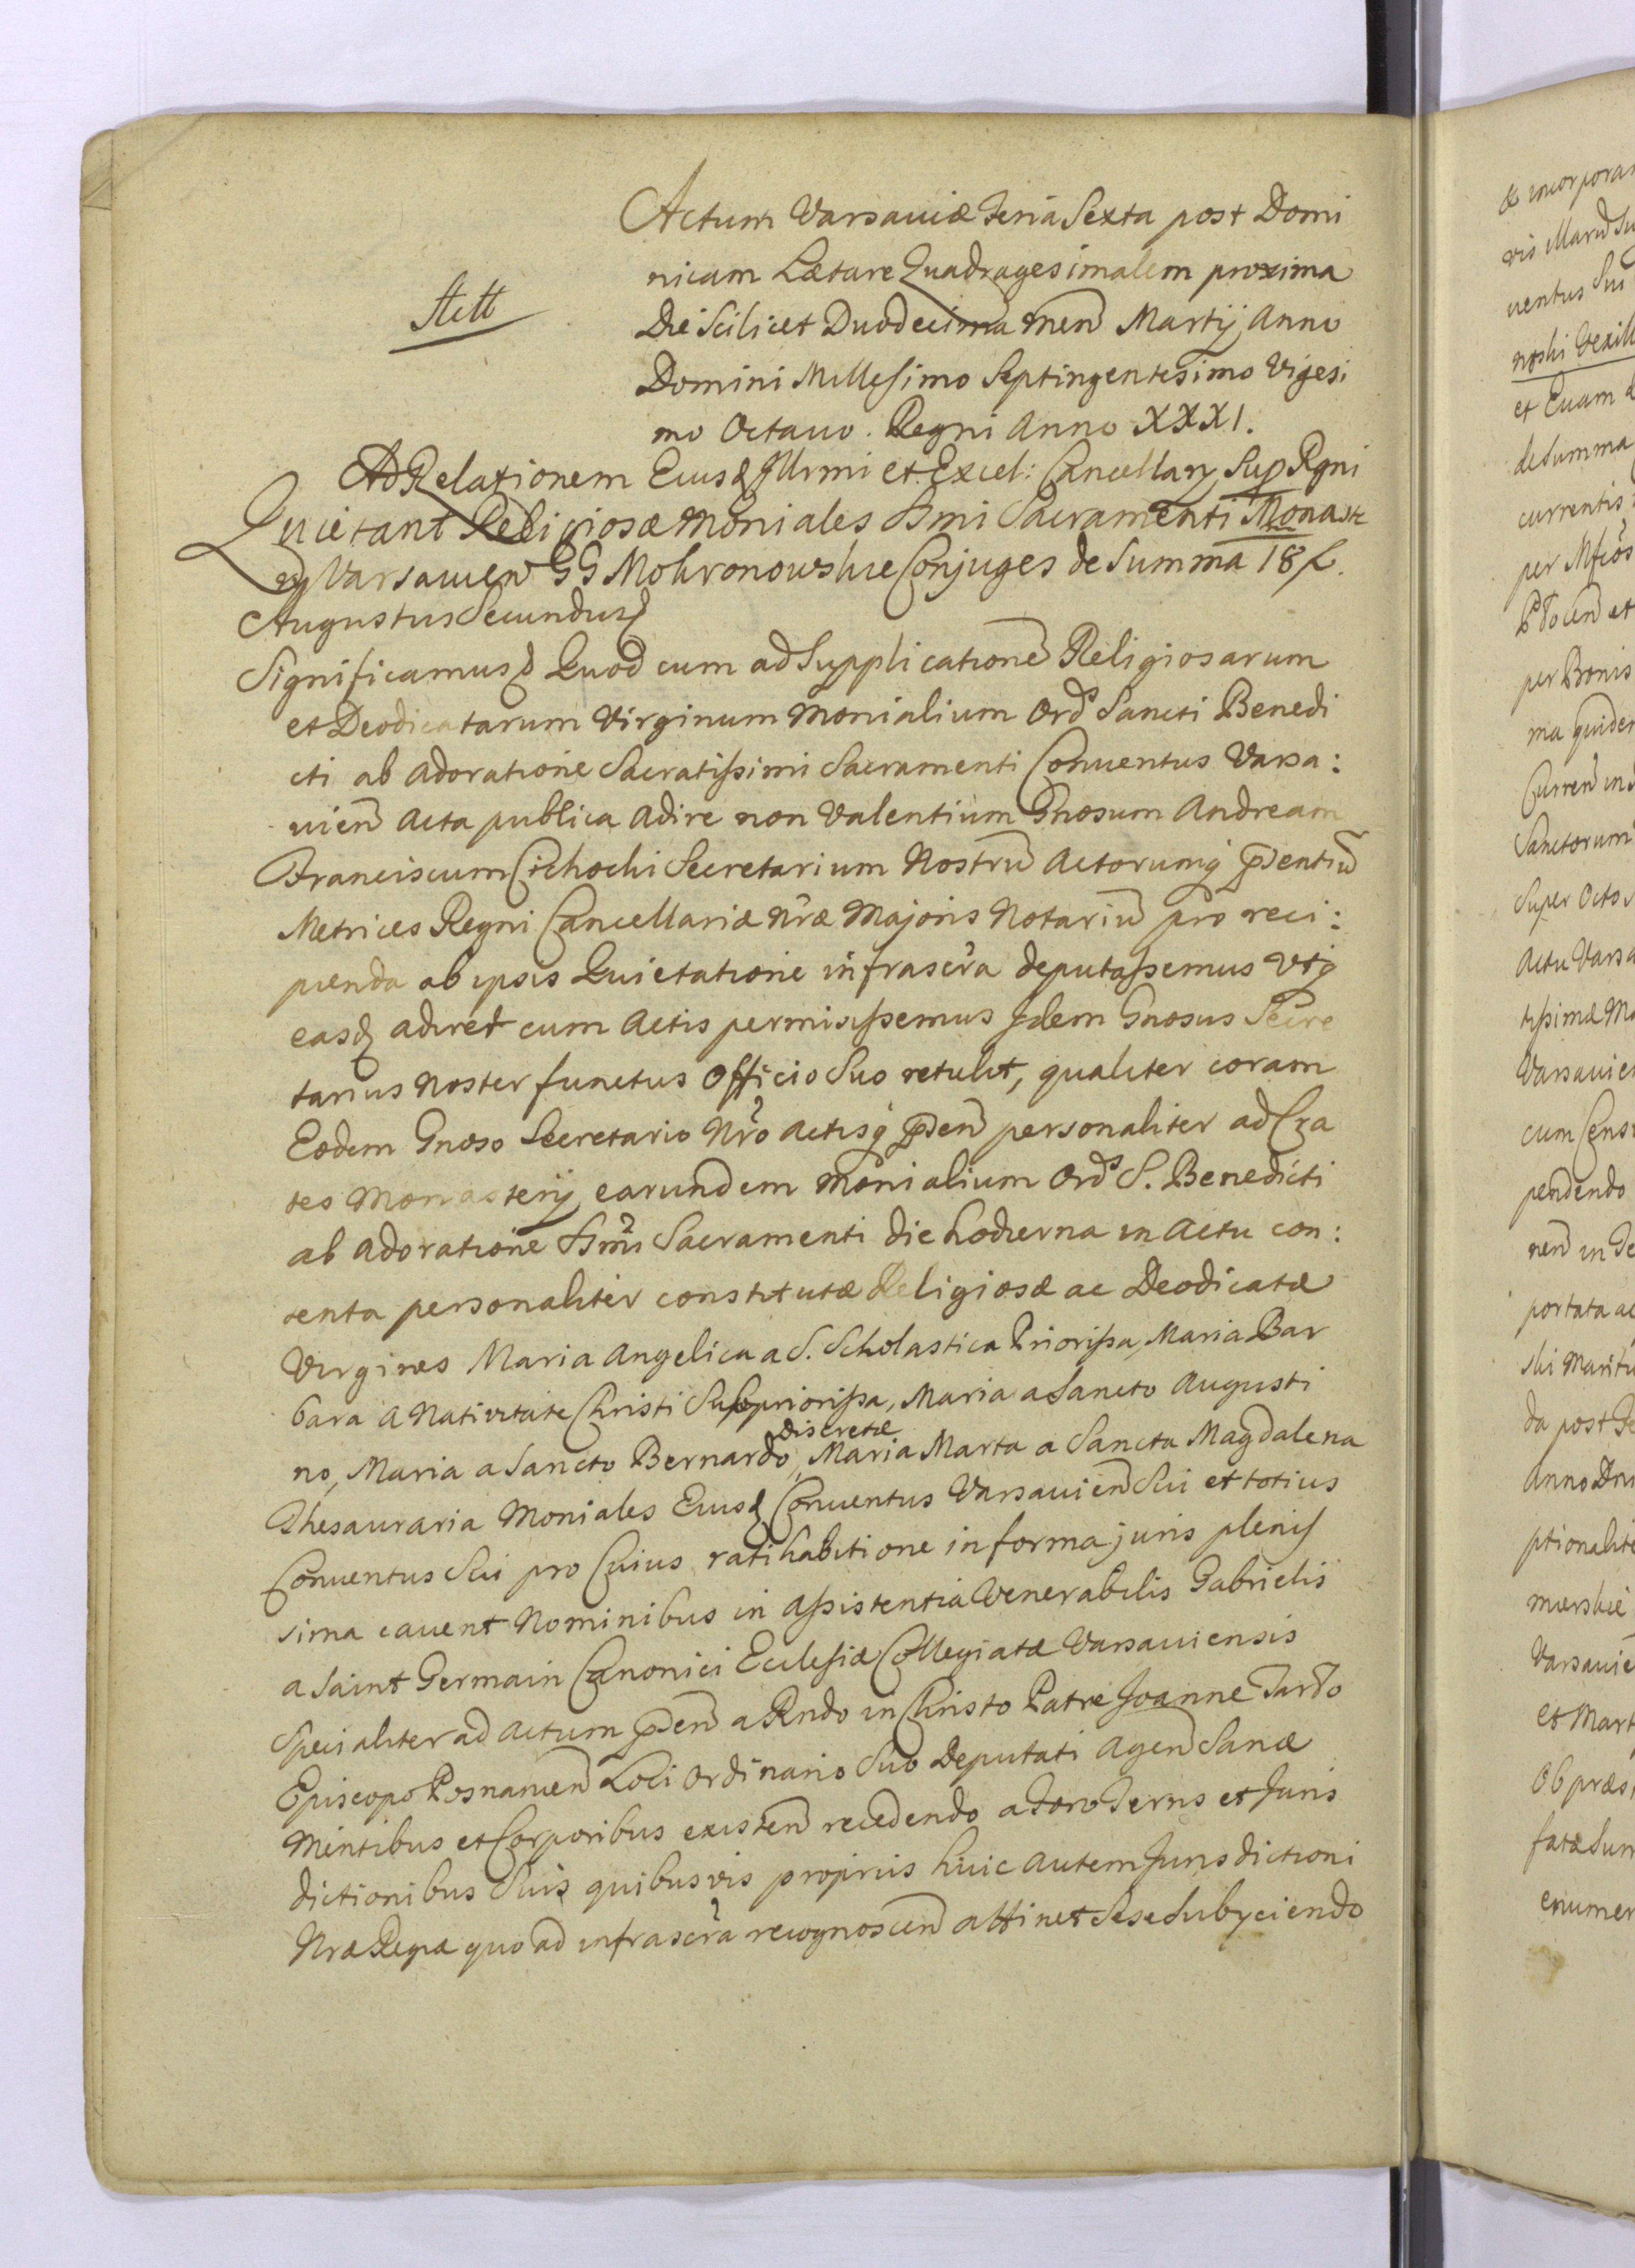 Actum Varsaviæ Feria Sexta post Domi
nicam Lætare Quadragesimalem proxima
Die Scilicet Duodecima Mens Martij Anno
Domini Millesimo Septingentesimo Vigesi
mo Octavo. Regni Anno XXXI.
Ad Relationem Eiusd Illrmi et Excel: Cancellarij Sup Rgni
Quietant Religiosæ Moniales Ssmi Sacramenti Monast
erij Varsavien GG Mokronowskie Conjuges de Summa 18/
Augustus Secundus
Significamus Quod cum ad Supplicatione Religiosarum
et Deodicatarum Virginum Monialium Ords Sancti Benedi
cti ab Adoratione Sacratissimi Sacramenti Conventus Varsa:
vien Acta publica Adire non Valentium Gnosum Andream
Franciscum Cichocki Secretarium Nostru Actorumq pdentiu
Metrices Regni Cancellariæ Nræ Majoris Notariu pro reci:
pienda ab ipsis Quietatione infrascra deputassemus Utq
easd adiret cum Actis permisissemus Idem Gnosus Secre
tarius Noster functus Officio Suo retulit, qualiter coram
Eodem Gnoso Secretario Nro Actisq pden personaliter ad Cra
tes Monasterij earundem Monialium Ords S. Benedicti
ab Adoratione Ssmi Sacramenti die hodierna in Actu con:
tenta personaliter constitutæ Religiosæ ac Deodicatæ
Virgines Maria Angelica a S. Scholastica Priorissa, Maria Bar
bara A Nativitate Christi Subpriorissa, Maria a Sancto Augusti
no, Maria a Sancto Bernardo discretæ, Maria Marta a Sancta Magdalena
Thesauraria Moniales Eiusd Conventus Varsavien Sui et totius
Conventus Sui pro Cuius ratihabitione in forma juris plenis
sima cavent Nominibus in Assistentia Venerabilis Gabrielis
a Saint Germain Canonici Ecclesiæ Collegiatæ Varsaviensis
Specialiter ad Actum pden a Rndo in Christo Patre Joanne Tarło
Episcopo Posnanien Loci Ordinario Suo Deputati Agen Sanæ
Mentibus et Corporibus existen recedendo a Foro Terris et Juris
dictionibus Suis quibusvis propriis huic Autem Jurisdictioni
Nræ Regiæ quo ad infrascra recognoscen attinet Sese Subyciendo